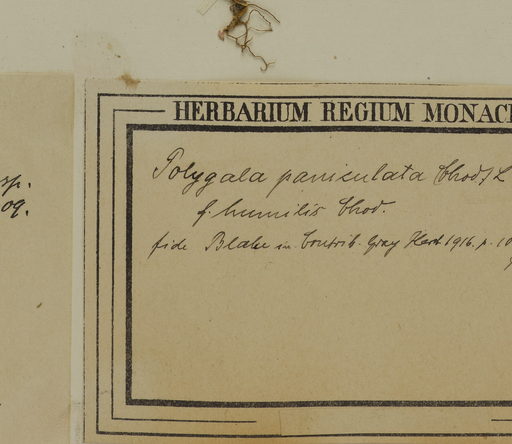 HERBARIUM REGIUM MONAC
sp.
09.
Polygala paniculata Chod/L
f. humilis Chod.
fide Blake in Contrib. Gray Herb 1916. p. 10